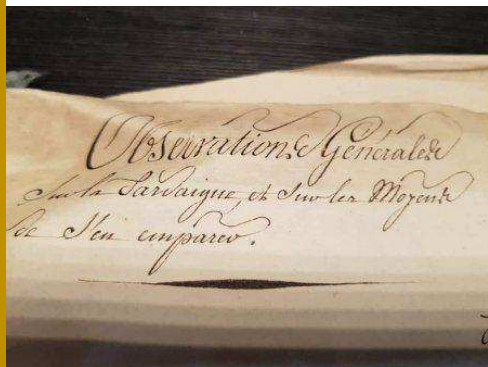 Observations Générales
sur la Sardaigne, et sur les Moyens
de s'en emparer.